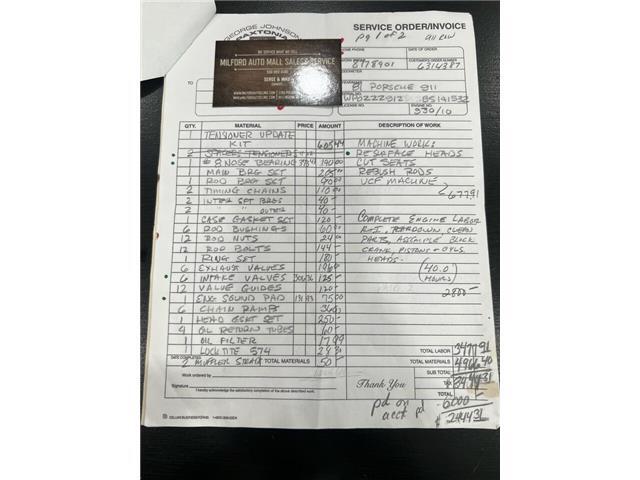 GEORGE JOHNSON
PAXTONIA
SERVICE ORDER/INVOICE
pg 1 of 2
WE SERVICE WHAT WE SELL
MILFORD AUTO MALL SALES & SERVICE
HOME PHONE
DATE OF ORDER
CUSTOMER'S ORDER NUMBER
8178901
6314387
81 PORSCHE 911
ENGINE NO.
930/10
QTY. MATERIAL PRICE AMOUNT DESCRIPTION OF WORK
1 TENSIONER UPDATE
KIT 605 44 MACHINE WORK:
2 SPACERS TENSIONERS RESURFACE HEADS
1 #8 NOSE BEARING 190 00 CUT SEATS
1 MAIN BRG SET REBUSH RODS
1 ROD BRG SET 90 00 VCF MACHINE
2 TIMING CHAINS 110 00 677.91
2 INTER SFT BRGS 40 -
2 " " OUTER 40 -
1 CASE GASKET SET 120 - COMPLETE ENGINE LABOR
6 ROD BUSHINGS 60 00 R+I, TEARDOWN, CLEAN
12 ROD NUTS 24 00 PARTS, ASSEMBLE BLOCK
12 ROD BOLTS 144 - CRANK, PISTONS + CYLS.
1 RING SET 180 - HEADS.
6 EXHAUST VALVES 196 (40.0
6 INTAKE VALVES 125 - HOURS)
12 VALVE GUIDES 120 - 2800 -
1 ENG SOUND PAD 131.93 75 00
6 CHAIN RAMPS 36 00
1 HEAD GSKT SET 250 -
4 OIL RETURN TUBES 60 -
1 OIL FILTER 17 99
1 LOCKTITE 574
2 MUFFLER STRAP 50 -
DATE COMPLETED
TOTAL MATERIALS
TOTAL LABOR 3477.91
TOTAL MATERIALS 4966.40
SUB TOTAL
TAX 8444.31
TOTAL
6000 -
$ 2444.31
Work ordered by
Signature
I hereby acknowledge the satisfactory completion of the above described work.
Thank You
pd on
acct pd